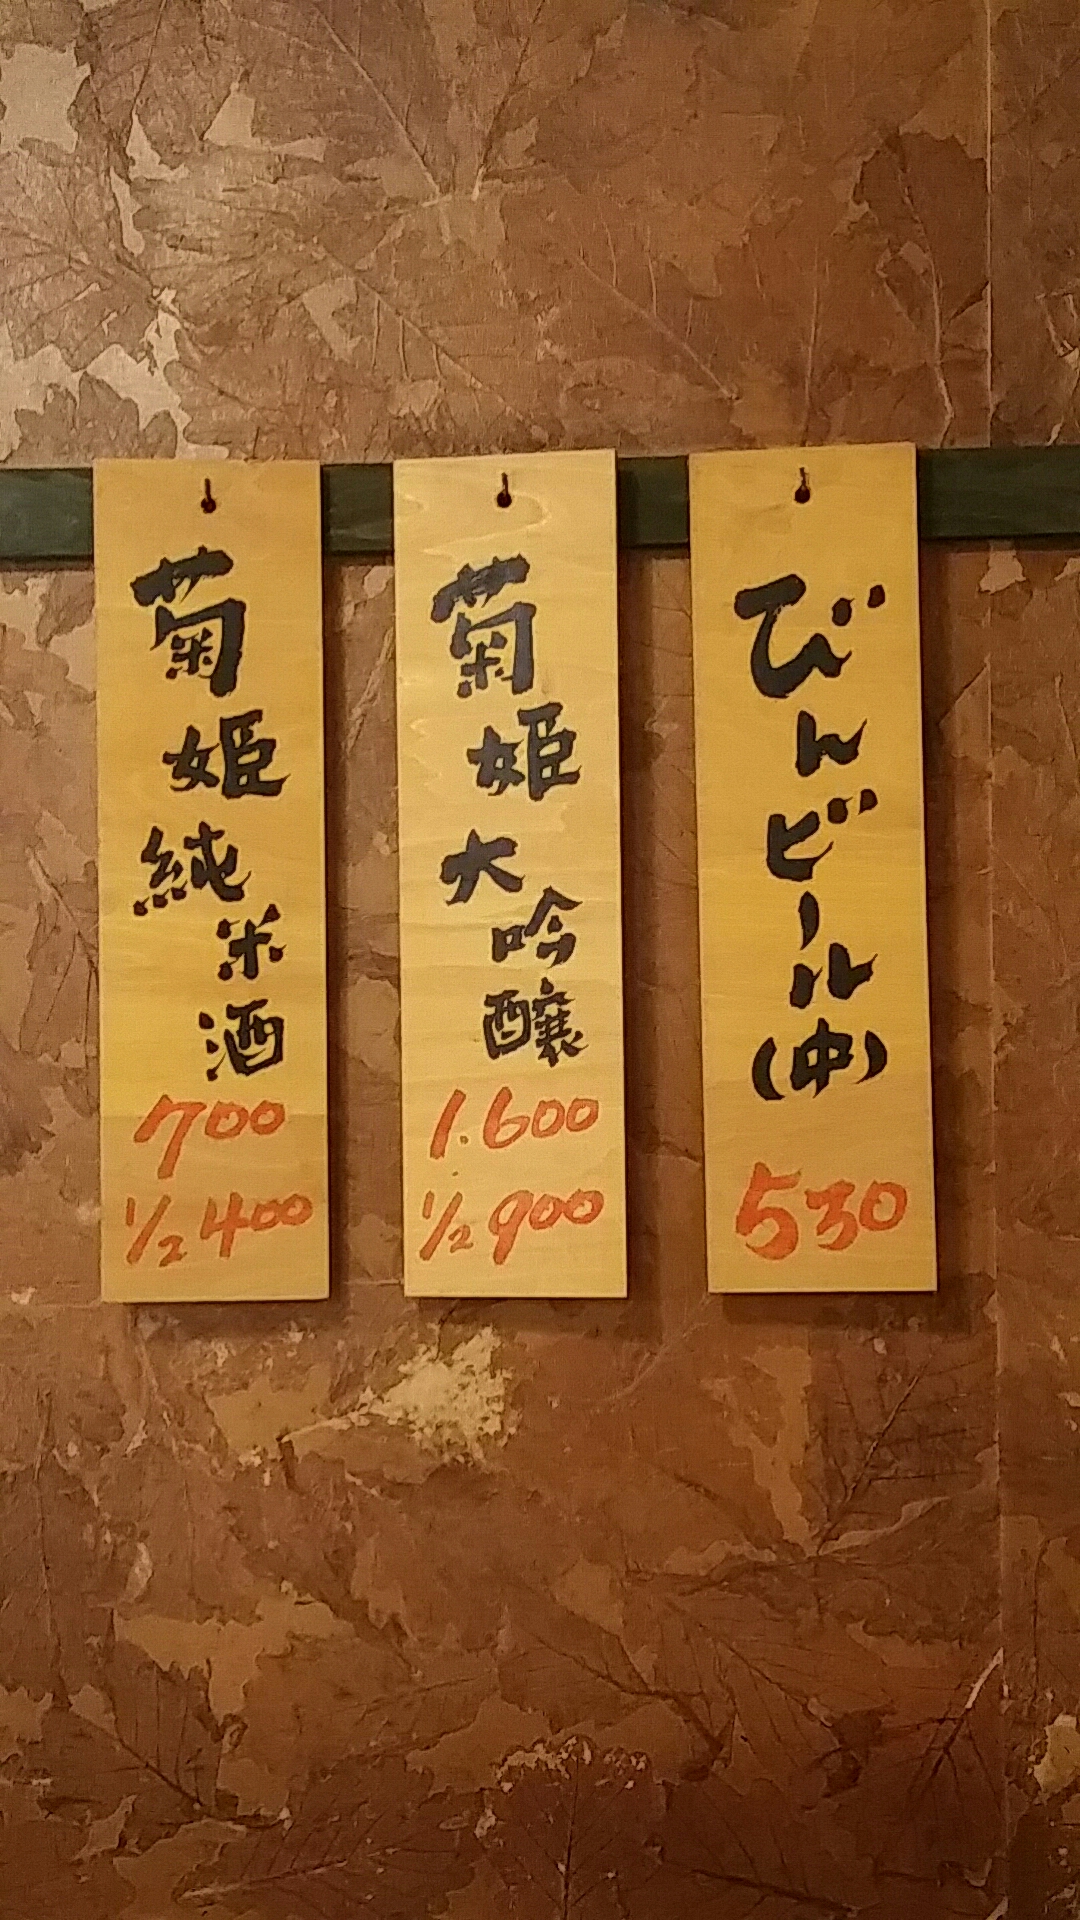 びんビール(中)
530
菊姫大吟醸
1.600
1/2 900
菊姫純米酒
700
1/2 400